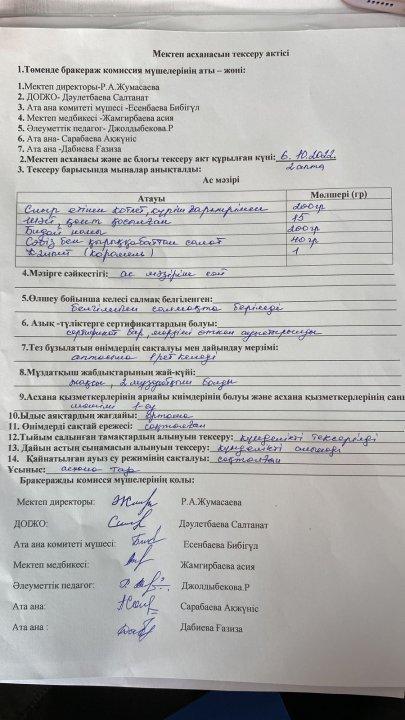 Мектеп асханасын тексеру актісі
1.Төменде бракераж комиссия мүшелерінің аты – жөні:
1.Мектеп директоры-Р.А.Жумасаева
2. ДОІЖО- Дәулетбаева Салтанат
3. Ата ана комитеті мүшесі -Есенбаева Бибігүл
4. Мектеп медбикесі -Жамгирбаева асия
5. Әлеуметтік педагог- Джолдыбекова.Р
6. Ата ана- Сарабаева Ақжүніс
7. Ата ана -Дабиева Ғазиза
2.Мектеп асханасы және ас блогы тексеру акт құрылған күні: 6.10.2022.
3. Тексеру барысында мыналар анықталды: 2 апта
Ас мәзірі
Атауы Мөлшері (гр)
Сиыр етінен котлет, күріш 200гр
қосылған 15
Бидай наны 200гр
Сәбіз бен қырыққабаттан салат 40гр
(Карамель) 1
4.Мәзірге сәйкестігі: ас мәзіріне сай
5.Өлшеу бойынша келесі салмақ белгіленген:
белгіленген салмақта беріледі
6. Азық -түліктерге сертификаттардың болуы:
сертификат бар, мерзімі өткен
7.Тез бұзылатын өнімдердің сақталуы мен дайындау мерзімі:
аптасына 1 рет келеді
8.Мұздатқыш жабдықтарының жай-күйі:
жақсы, 2 мұздатқыш болды
9.Асхана қызметкерлерінің арнайы киімдерінің болуы және асхана қызметкерлерінің сани
10.Ыдыс аяқтардың жағдайы: орташа
11. Өнімдерді сақтай ережесі: сақталған
12.Тыйым салынған тамақтардың алынуын тексеру: күнделікті тексеріледі
13. Дайын астың сынамасын алынуын тексеру: күнделікті алынады
14. Қайнатылған ауыз су режимінің сақталуы: сақталған
Ұсыныс: асхана тар
Бракеражды комисся мүшелерінің қолы:
Мектеп директоры: Р.А.Жумасаева
ДОІЖО: Дәулетбаева Салтанат
Ата ана комитеті мүшесі: Есенбаева Бибігүл
Мектеп медбикесі: Жамгирбаева асия
Әлеуметтік педагог: Джолдыбекова.Р
Ата ана: Сарабаева Ақжүніс
Ата ана : Дабиева Ғазиза